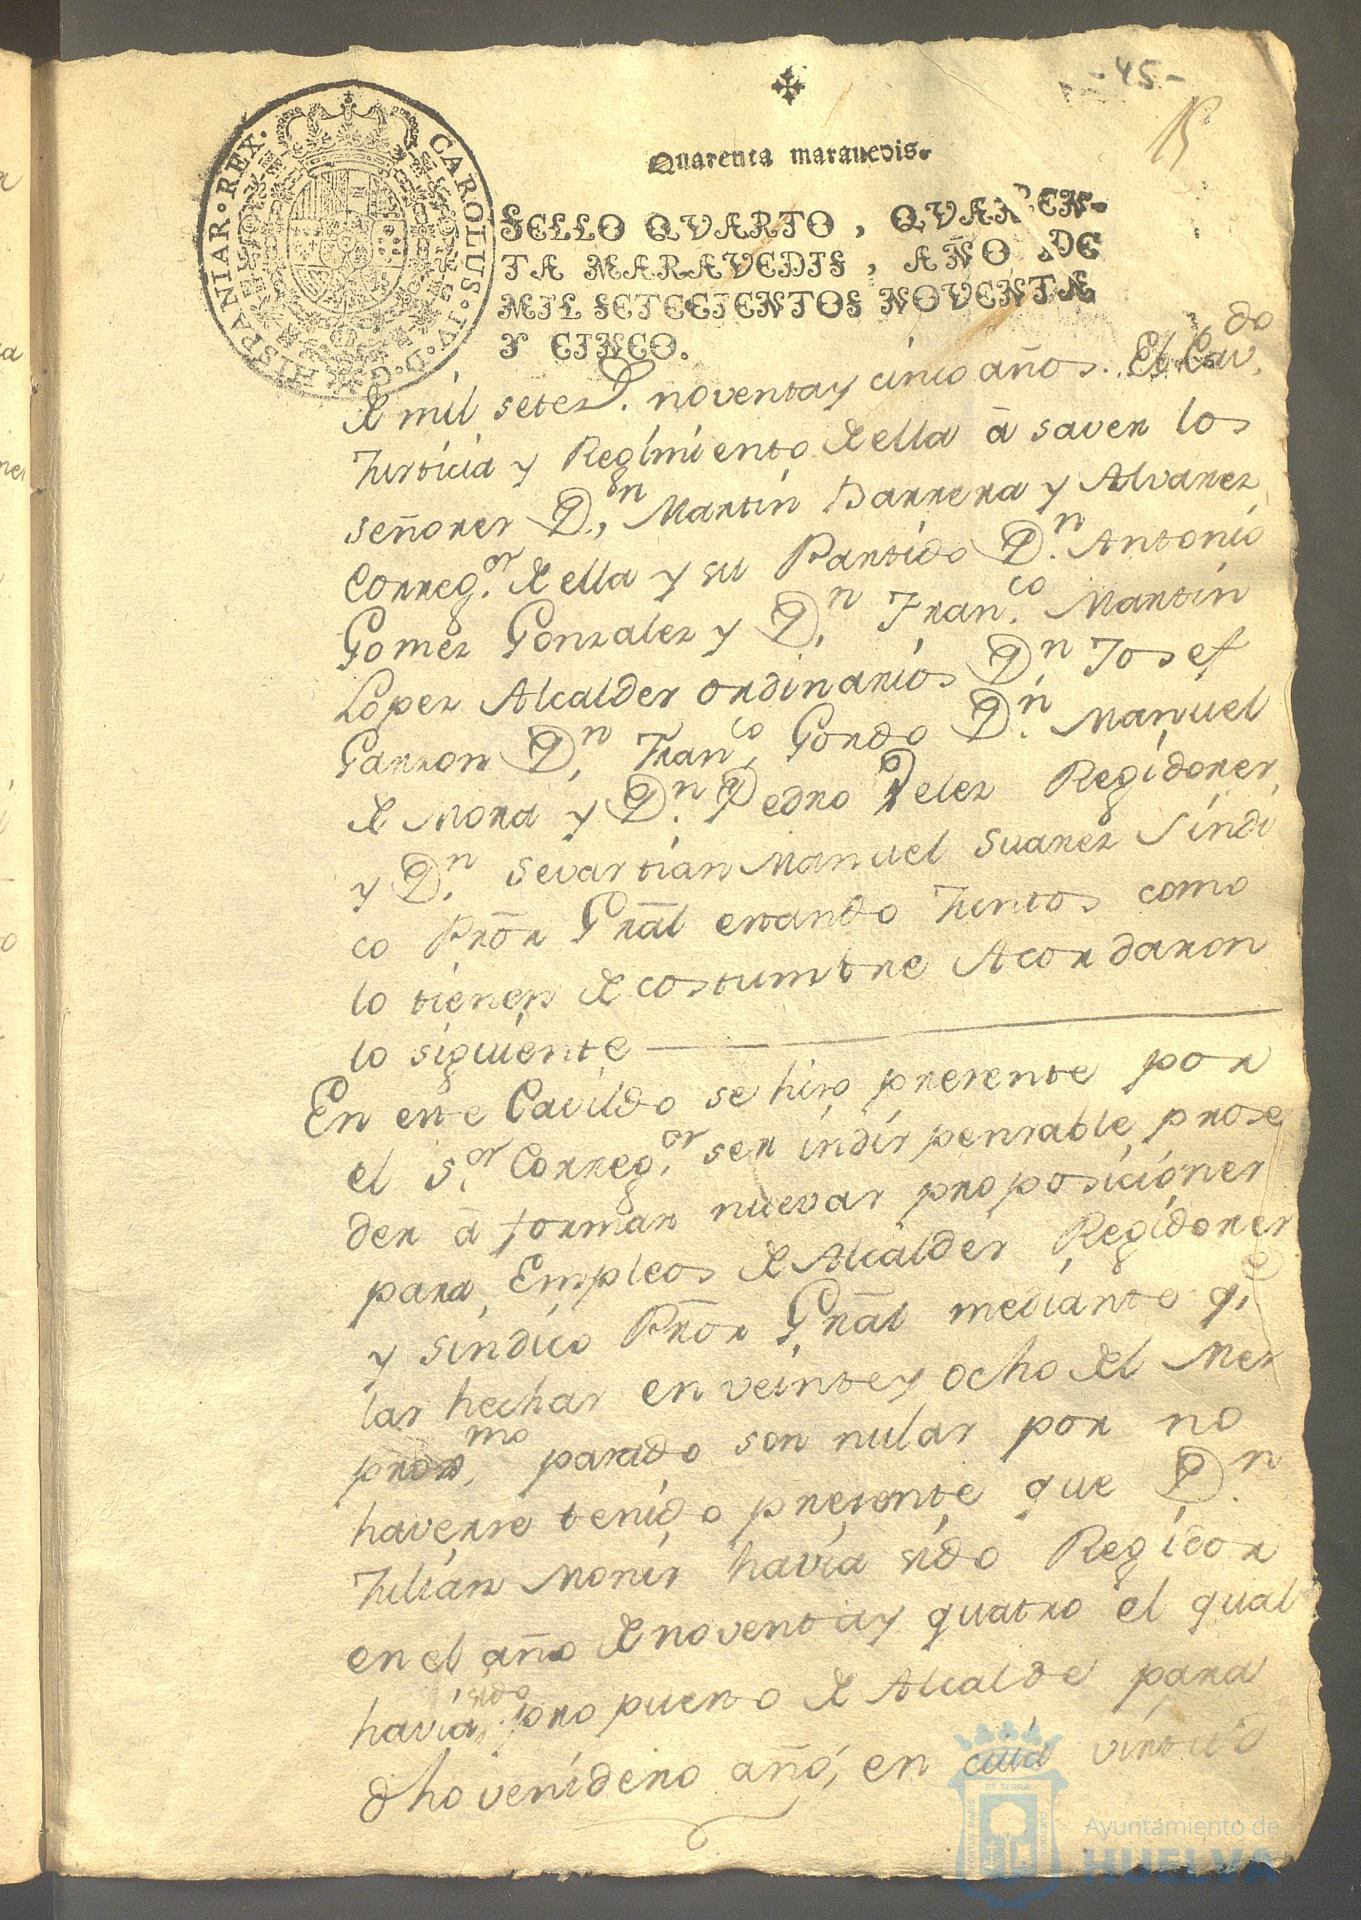 -45-
15
Quarenta marauedis.
SELLO QVARTO, QVAREN-
TA MARAVEDIS, AÑO DE
MIL SETECIENTOS NOVENTA
Y CINCO.
CAROLUS·IV·D·G·HISPANIAR·REX·
de mil setez.s noventa y cinco años. El Cav.do
Justicia y Regimiento de ella â saver los
señores D.n Martin Barrera y Alvarez
Correg.or de ella y su Partido D.n Antonio
Gomez Gonzalez y D.n Fran.co Martin
Lopez Alcaldes ordinarios D.n Josef
Garzon D.n Fran.co Gordo D.n Manuel
de Mora y D.n Pedro Velez Regidores,
y D.n Sevastian Manuel Suarez Sindi
co Prõr Grãl estando Juntos como
lo tienen de costumbre Acordaron
lo siguiente
En este Cavildo se hizo presente por
el S.or Correg.or ser indispensable, prose
der â formar nuevas proposiciones
para Empleos de Alcaldes Regidores
y sindico Prõr Grãl mediante q.e
las hechas en veinte y ocho del Mes
prox.mo pasado son nulas por no
haverse tenido presente que D.n
Julian Monis havia sido Regidor
en el año de noventa y quatro el qual
havia sido propuesto de Alcalde para
dho venidero año, en cuia virtud
Ayuntamiento de
HUELVA